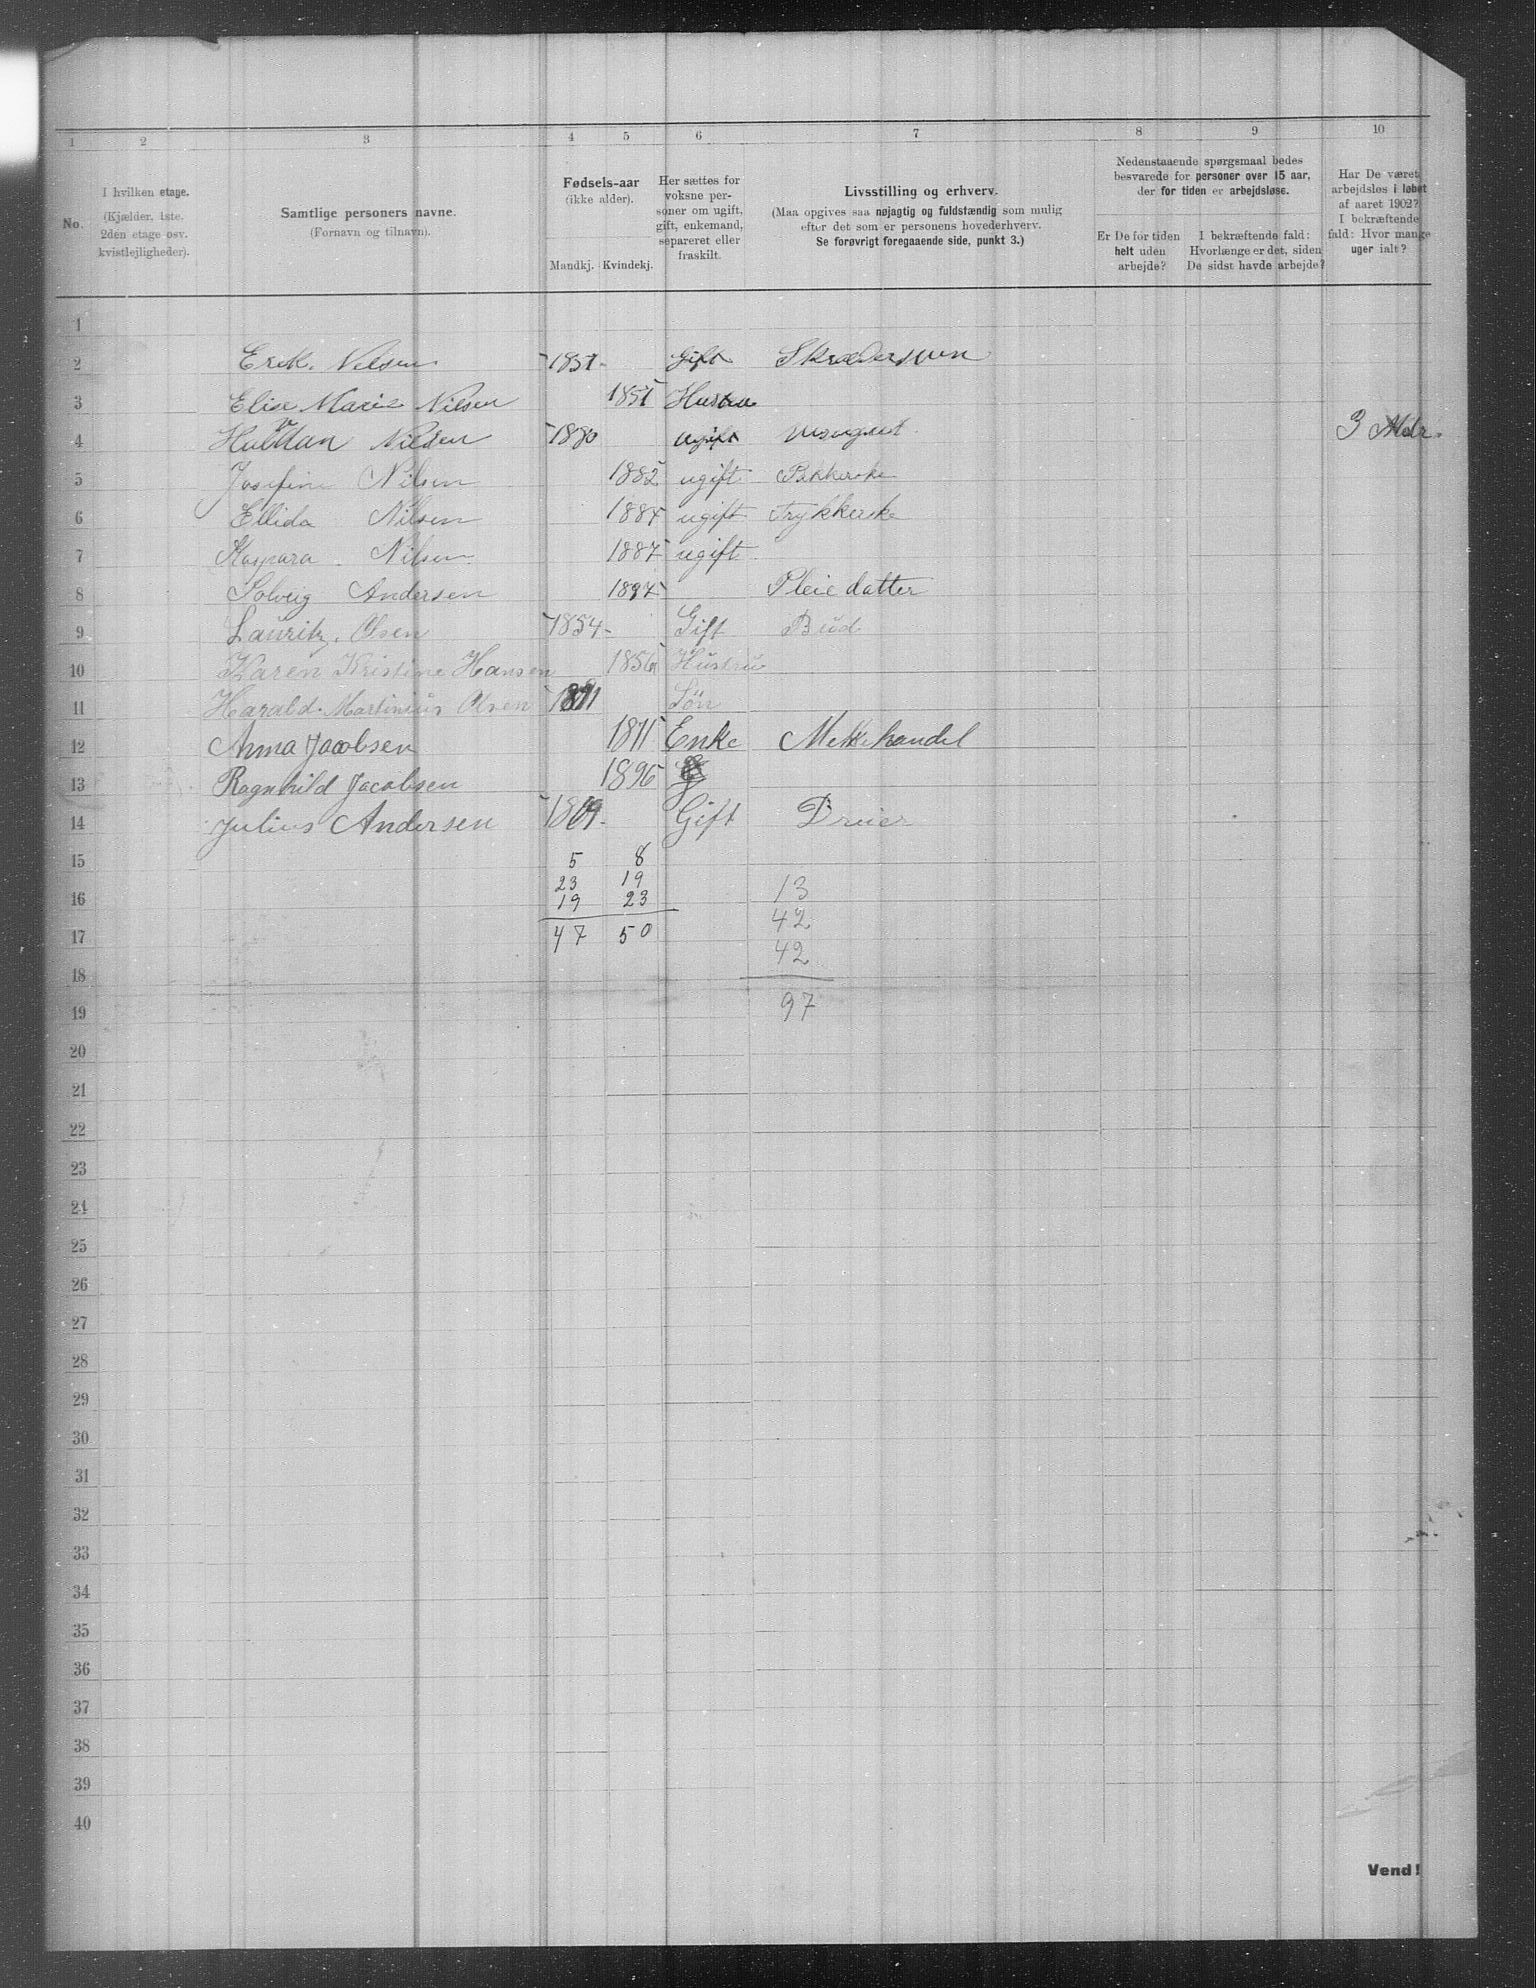 1 2 3 4 5 6 7 8 9 10
No.
I hvilken etage.
(Kjælder, 1ste, 2den etage osv. kvistlejligheder).
Samtlige personers navne.
(Fornavn og tilnavn).
Fødsels-aar
(ikke alder).
Mandkj. Kvindekj.
Her sættes for voksne personer om ugift, gift, enkemand, separeret eller fraskilt.
Livsstilling og erhverv.
(Maa opgives saa nøjagtig og fuldstændig som mulig
efter det som er personens hovederhverv.
Se forøvrigt foregaaende side, punkt 3.)
Nedenstaaende spørgsmaal bedes
besvarede for personer over 15 aar,
der for tiden er arbejdsløse.
Er De for tiden
helt uden
arbejde?
I bekræftende fald:
Hvorlænge er det, siden
De sidst havde arbejde?
Har De været
arbejdsløs i løbet
af aaret 1902?
I bekræftende
fald: Hvor mange
uger ialt?
1
2 Erik. Nilsen 1851 Gift Skrædersven
3 Elise Marie Nilsen 1851 Hustru
4 Nilsen 1880 ugift 3 Mdr.
5 Josefine Nilsen 1882 ugift
6 Ellida Nilsen 1884 ugift Trykkerske
7 Kaspara Nilsen 1887 ugift
8 Solveig Andersen 1894 Pleiedatter
9 Lauritz. Olsen 1854 Gift Bud
10 Karen Kristine Hansen 1856 Hustru
11 Harald. Martinius Olsen Søn
12 Anna Jacobsen 1871 Enke Melkehandel
13 Ragnhild Jacobsen 1896
14 Julius Andersen Gift Dreier
15 5 8
23 19
16 19 23 13
42
17 47 50
42
18
19 97
20
21
22
23
24
25
26
27
28
29
30
31
32
33
34
35
36
37
38
39
40
Vend!